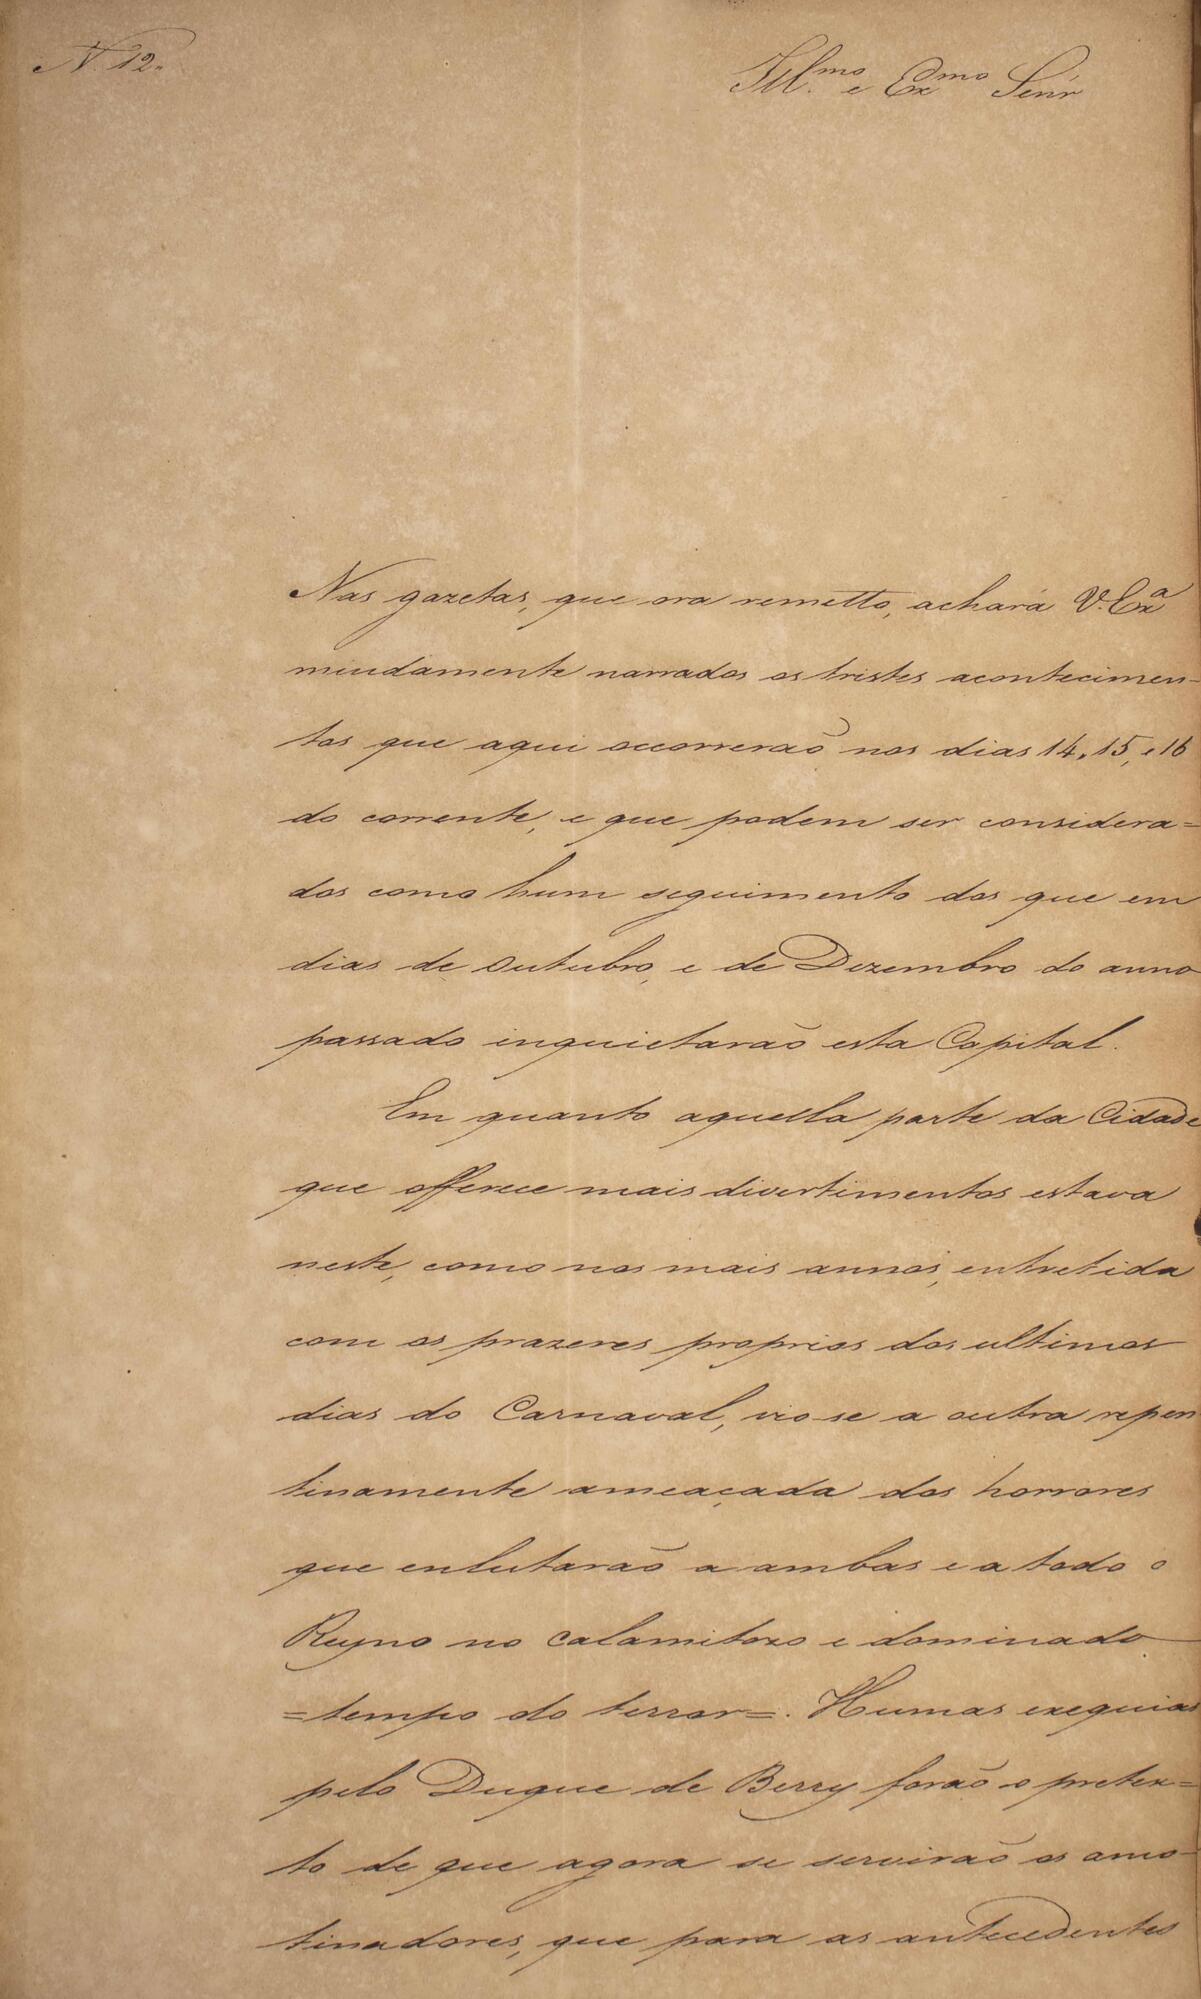 N. 12.
Ill.mo e Exmo Senr
Nas gazetas, que ora remetto, achará V. Exa
miudamente narrados os tristes acontecimen-
tos que aqui occorrerão nos dias 14, 15, e 16
do corrente, e que podem ser considera=
dos como hum seguimento dos que em
dias de Outubro, e de Dezembro do anno
passado inquietarão esta Capital.
Em quanto aquella parte da Cidade
que offerece mais divertimentos estava
neste, como nos mais annos, entretida
com os prazeres proprios dos ultimos
dias do Carnaval, vio-se a outra repen
tinamente ameaçada dos horrores
que enlutarão a ambas e a todo o
Reyno no calamitozo e dominado
=tempo do terror=. Humas exequias
pelo Duque de Berry forão o pretex=
to de que agora se servirão os amo-
tinadores, que para as antecedentes